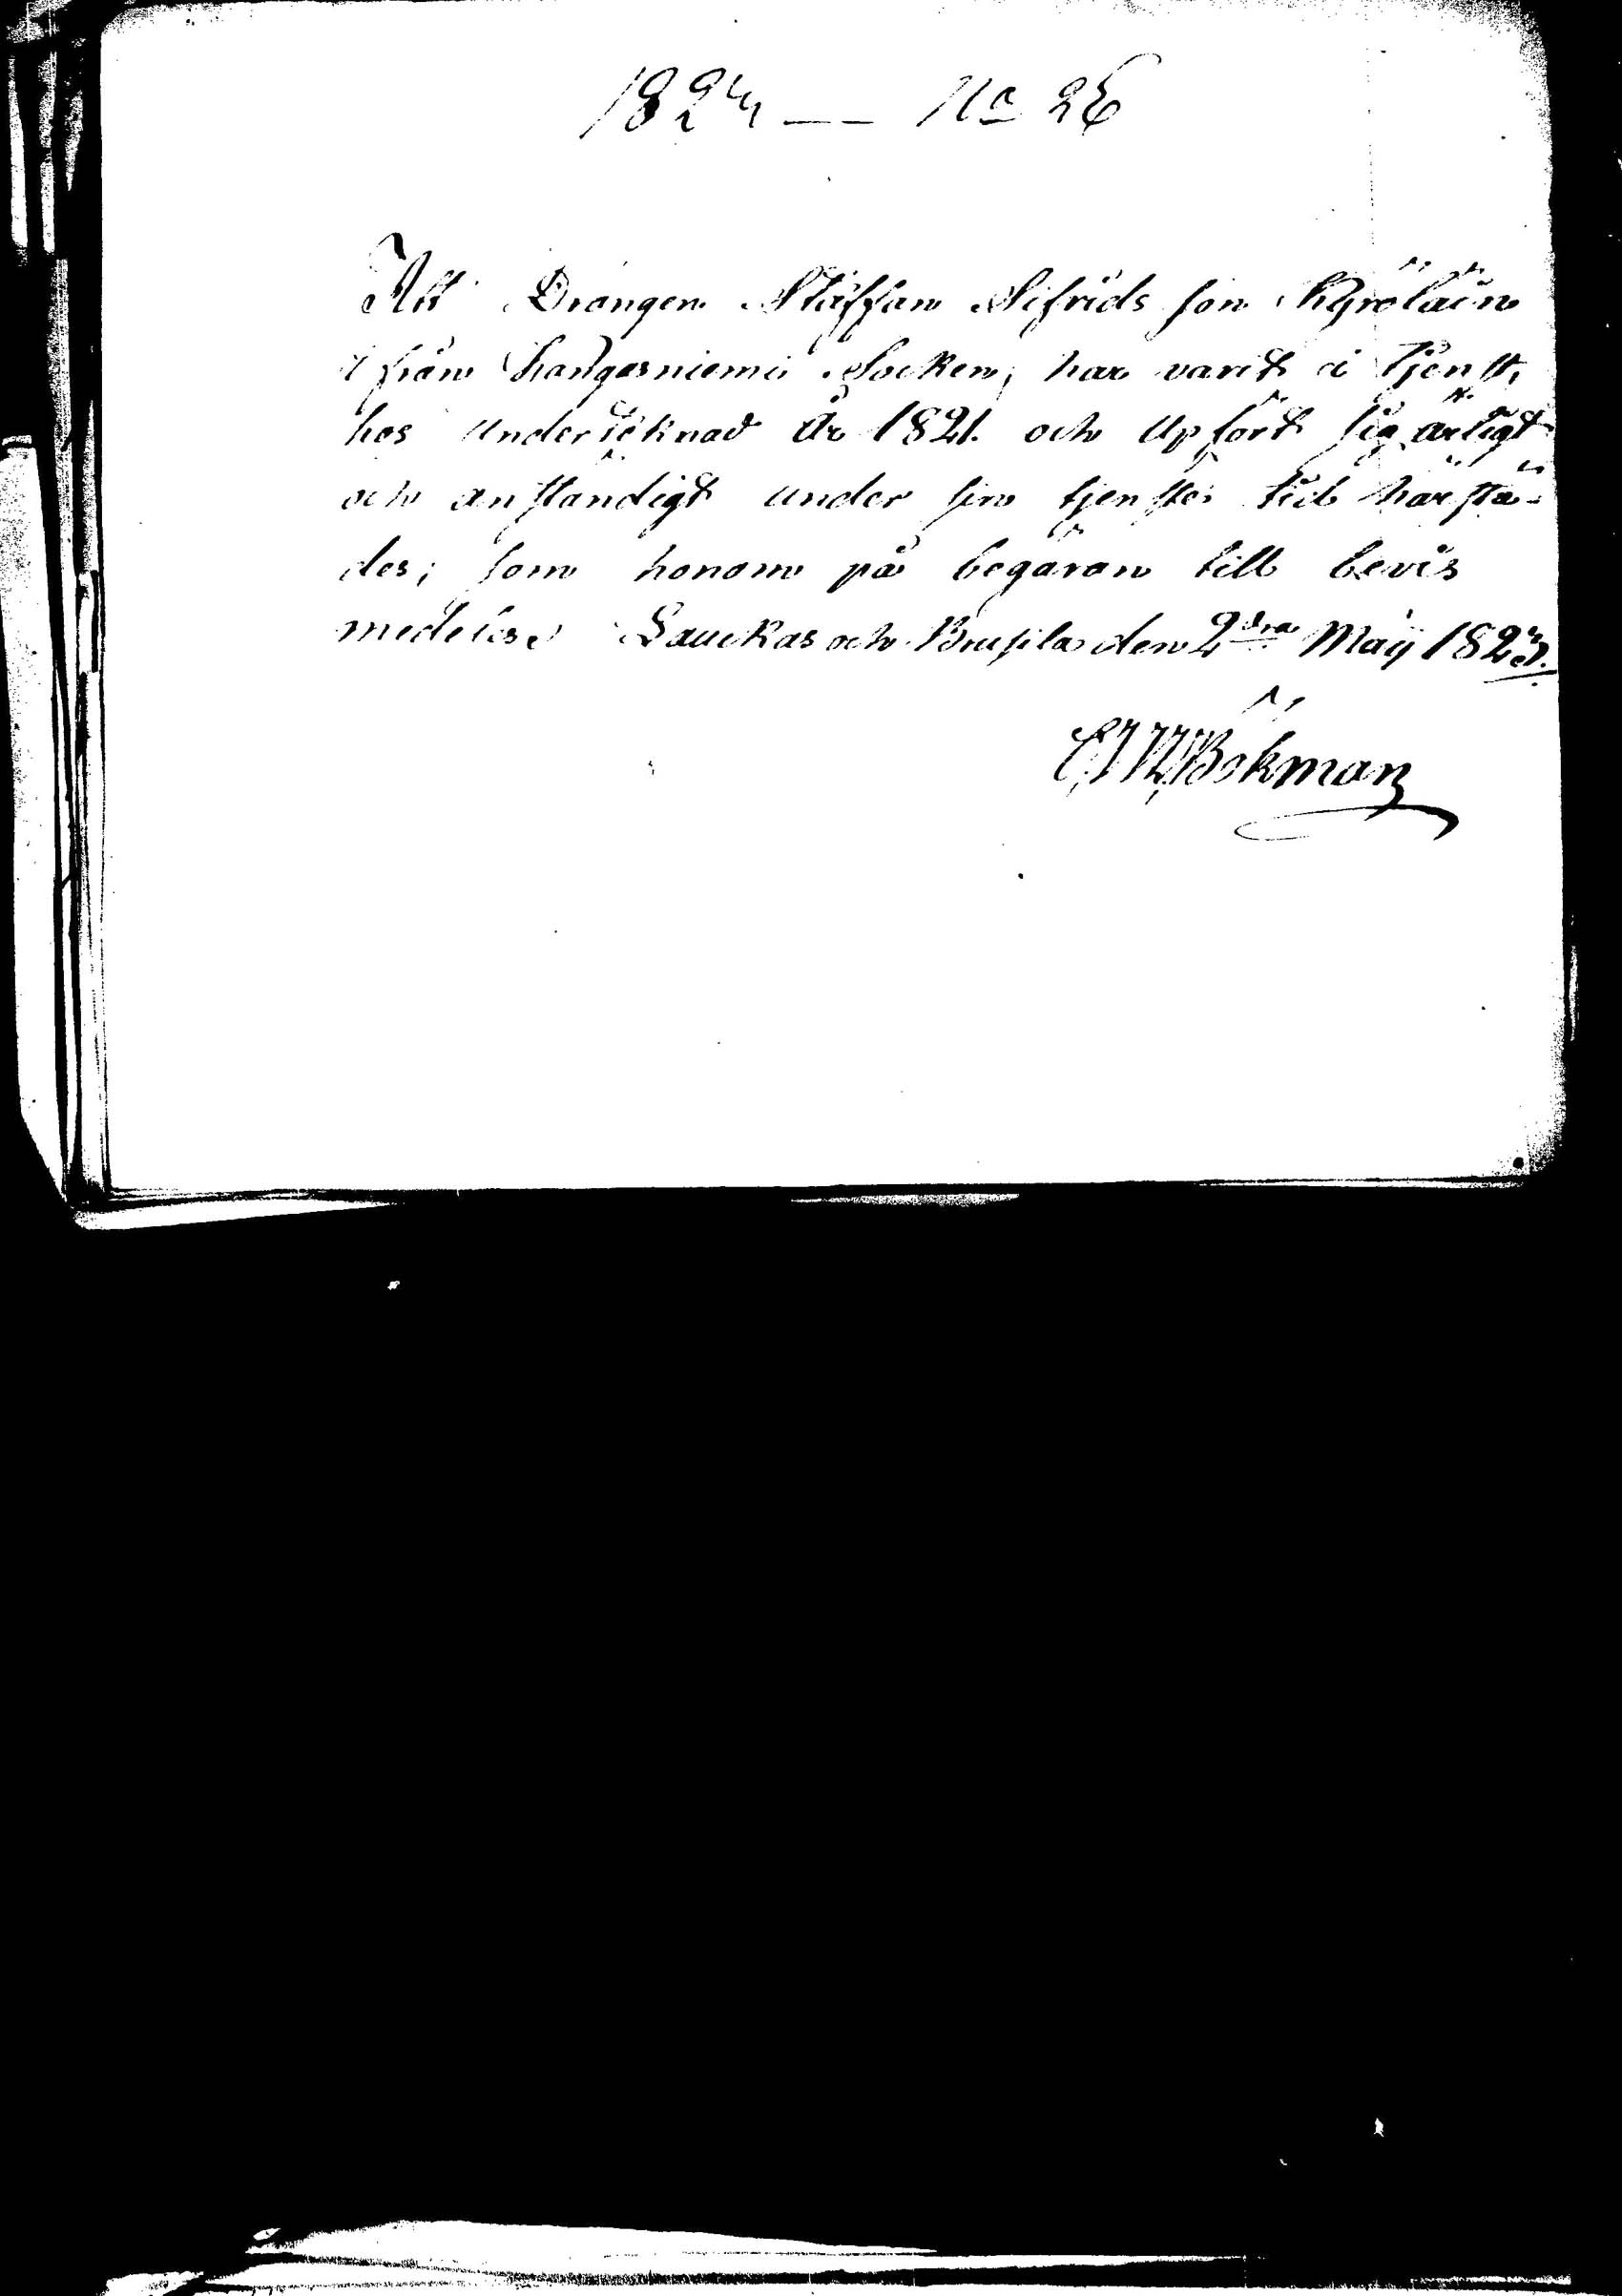 1823 — No 26
Att Drängen Staffan Sifrids son Kyröläin
ifrån Kangasniemi Socken, har varit i tjenst,
hos undertéknad År 1821. och upfört sig ärligt
och anständigt under sin tjenste tid härstä-
des; som honom på begäran till bevis
medelas. Lauckas och den 2dra Maij 1823.
C.J.W.Bökman